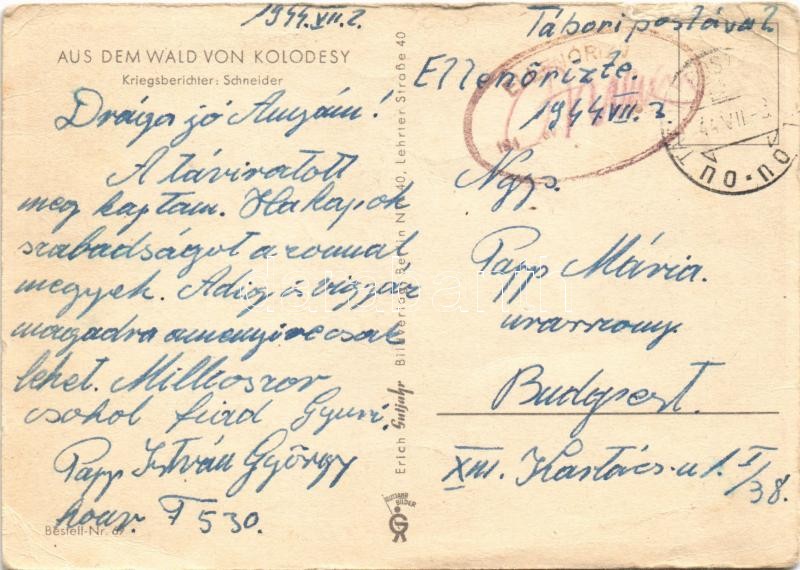 1944.VII.2.
AUS DEM WALD VON KOLODESY
Kriegsberichter: Schneider
Drága jó Anyám!
A táviratott
meg kaptam. Ha kapok
szabadságot azonnal
megyek. Adig is vigyáz
magadra amenyire csak
lehet. Milliószor
csókol fiad Gyuri.
Papp István György
honv. F 530.
Bestell-Nr. 67
Erich Gutjahr Bildverlag, Berlin NW 40, Lehrter Straße 40
GUTJAHR
BILDER
Tábori postával
Ellenőrizte.
1944.VII.2.
ELLENŐRIZVE
194
Ngys.
Papp Mária.
úrasszony.
Budapest.
XIII. Kartács-u 1. I/38.